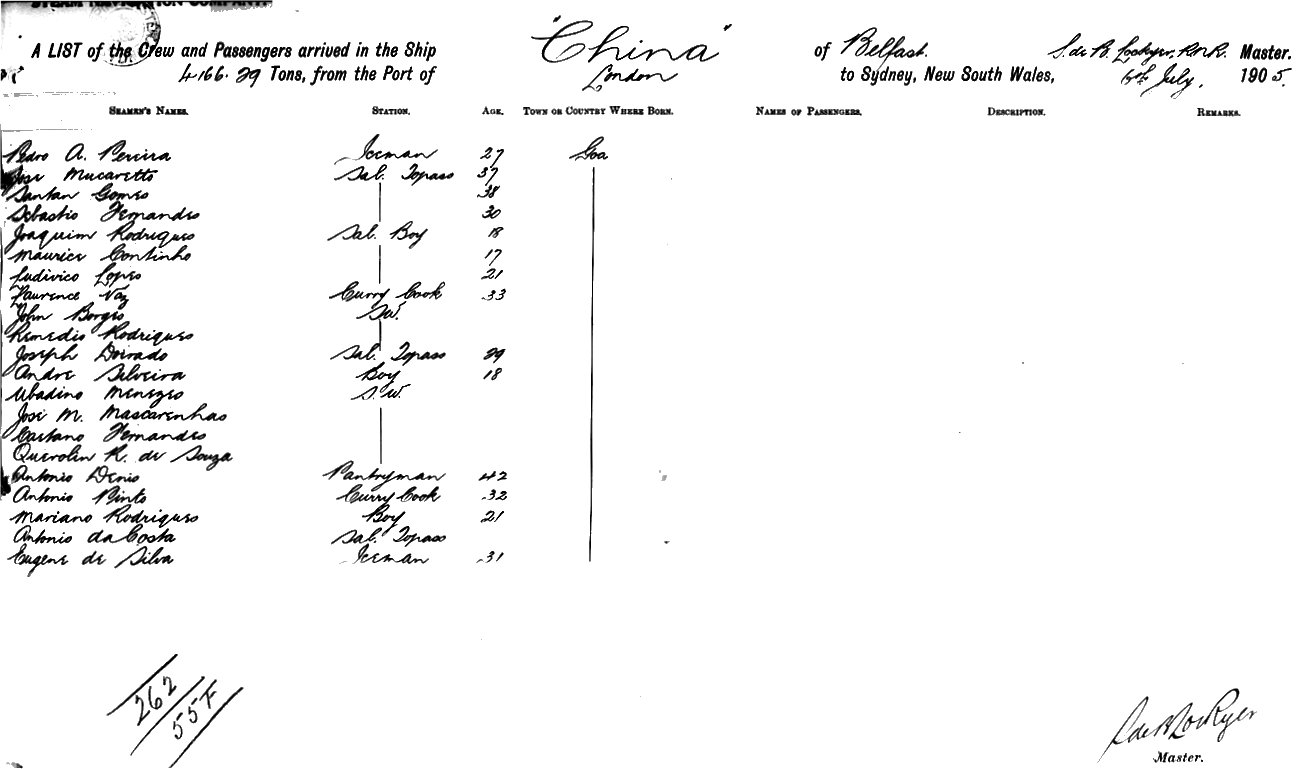 STEAM NAVIGATION COMPANY.
A LIST of the Crew and Passengers arrived in the Ship "China" of Belfast. S. de B. Lockyer, R.N.R. Master.
4,166.29 Tons, from the Port of London to Sydney, New South Wales, 6th July, 1905.
SEAMEN'S NAMES. STATION. AGE. TOWN OR COUNTRY WHERE BORN. NAMES OF PASSENGERS. DESCRIPTION. REMARKS.
Pedro A. Pereira Iceman 27 Goa
Jose Mucaretto Sal. Topass 37
Santan Gomes 38
Sebastio Fernandes 30
Joaquim Rodrigues Sal. Boy 18
Maurice Continho 17
Ludivico Lopes 21
Laurence Vaz Curry Cook 33
John Borges S.W.
Remedio Rodrigues
Joseph Dorado Sal. Topass 29
Andre Silveira Boy 18
Ubadino Menezes S.W.
Jose M. Mascarenhas
Caetano Fernandes
Querolin R. de Souza
Antonio Denis Pantryman 42
Antonio Pinto Curry Cook 32
Mariano Rodrigues Boy 21
Antonio da Costa Sal. Topass
Eugene de Silva Iceman 31
262
557
S de B Lockyer
Master.